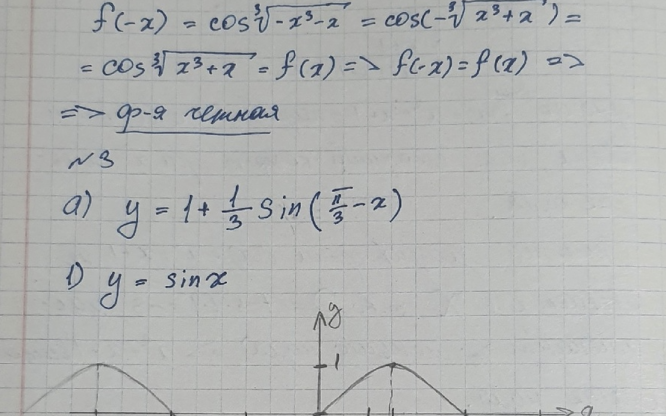 f(-x) = cos∛(-x³-x) = cos(-∛(x³+x)) =
= cos∛(x³+x) = f(x) => f(-x) = f(x) =>
=> ф-я четная
№3
а) y = 1 + 1/3 sin(π/3 - x)
1) y = sinx
y
1